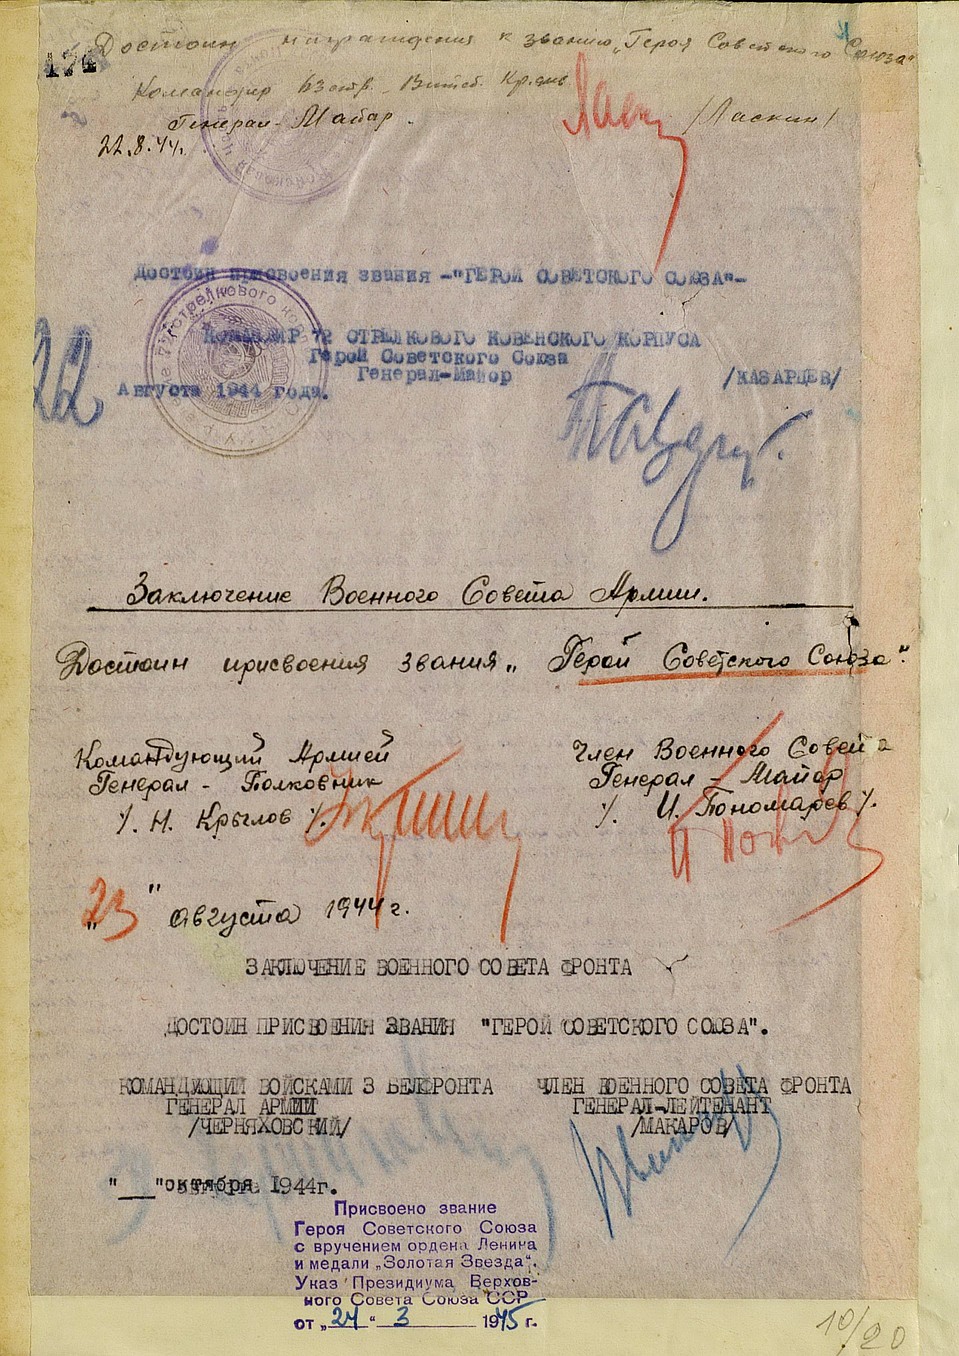 174
Достоин награждения к званию „Героя Советского Союза"
Командир 63 стр. Витеб. Кр.зн.
Генерал-Майор. /Ласкин/
22.8.44г.
Достоин присвоения звания -"ГЕРОЙ СОВЕТСКОГО СОЮЗА"-
КОМАНДИР 72 СТРЕЛКОВОГО КОВЕНСКОГО КОРПУСА
Герой Советского Союза
Генерал-Майор /КАЗАРЦЕВ/
22 Августа 1944 года.
Заключение Военного Совета Армии.
Достоин присвоения звания „Герой Советского Союза".
Командующий Армией Член Военного Совета
Генерал-Полковник Генерал-Майор
/. Н. Крылов /. /. И. Пономарев /.
"23" августа 1944г.
ЗАКЛЮЧЕНИЕ ВОЕННОГО СОВЕТА ФРОНТА
ДОСТОИН ПРИСВОЕНИЯ ЗВАНИЯ "ГЕРОЙ СОВЕТСКОГО СОЮЗА".
КОМАНДУЮЩИЙ ВОЙСКАМИ 3 БЕЛФРОНТА ЧЛЕН ВОЕННОГО СОВЕТА ФРОНТА
ГЕНЕРАЛ АРМИИ ГЕНЕРАЛ-ЛЕЙТЕНАНТ
/ЧЕРНЯХОВСКИЙ/ /МАКАРОВ/
"__"октября 1944г.
Присвоено звание
Героя Советского Союза
с вручением ордена Ленина
и медали „Золотая Звезда".
Указ Президиума Верхов-
ного Совета Союза ССР
от „24" 3 1945 г.
19/20